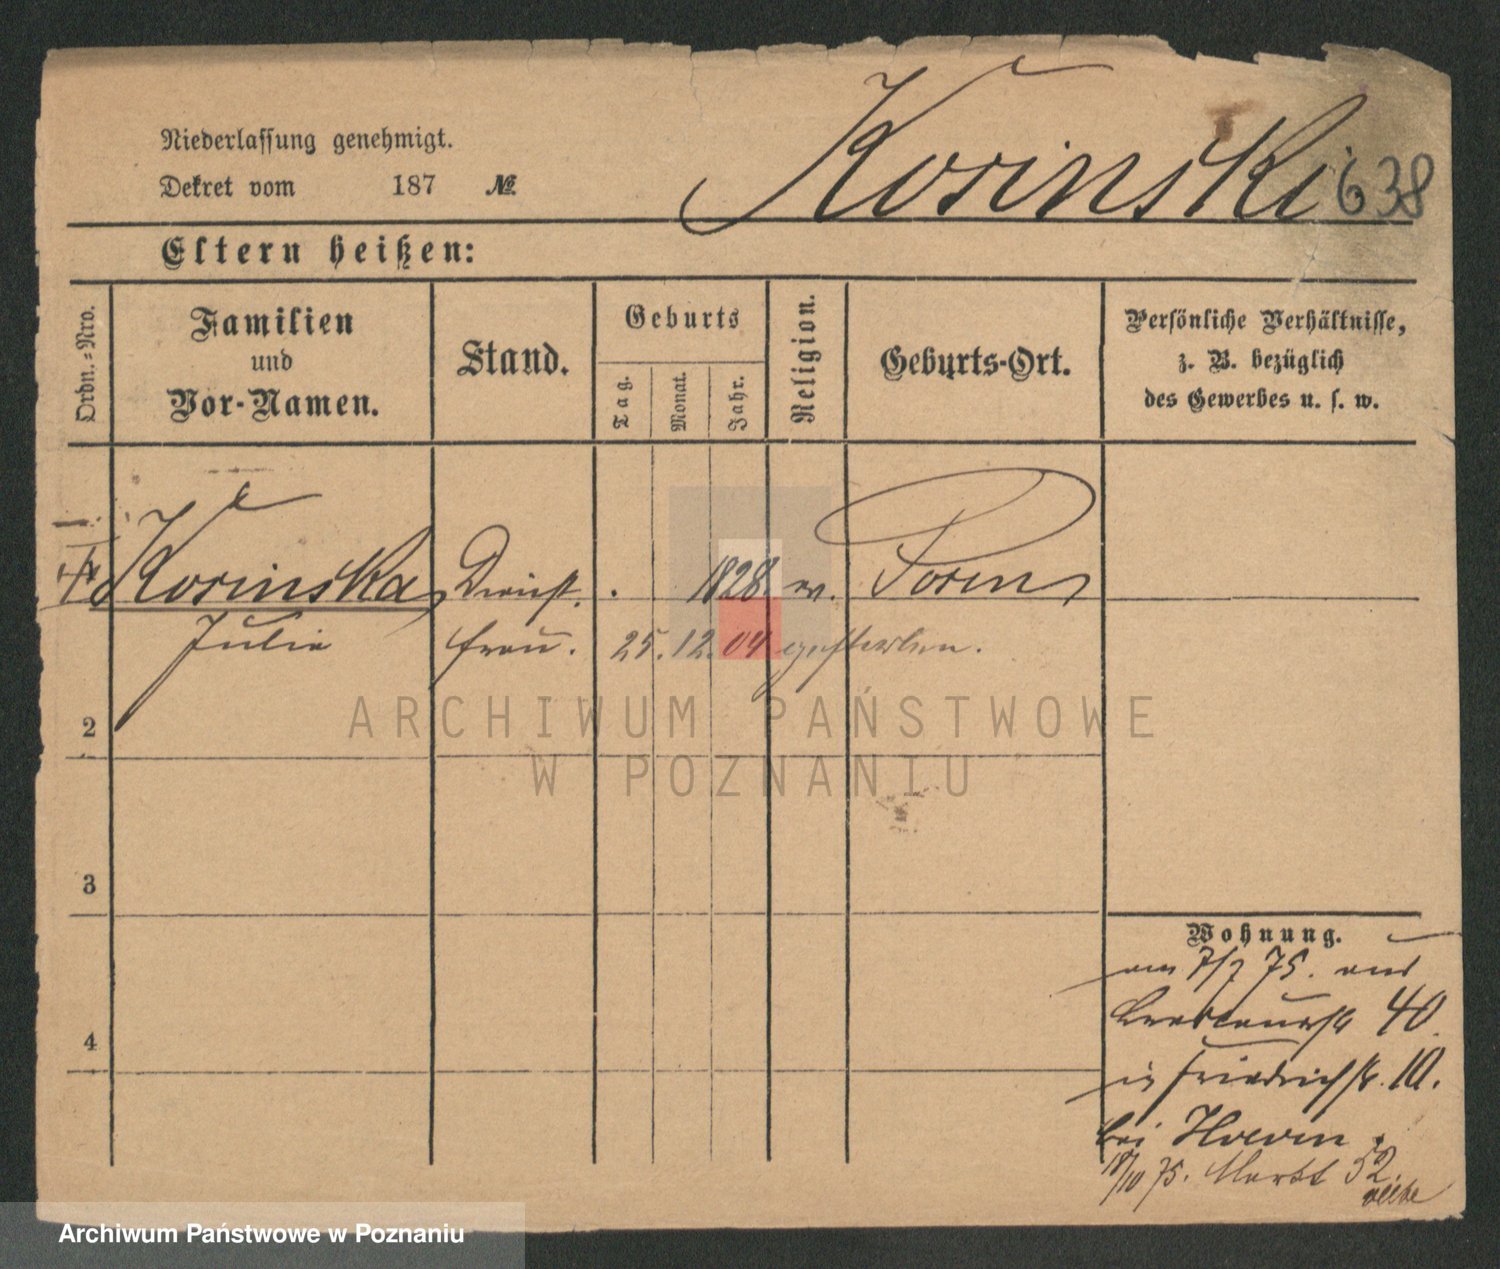 Niederlassung genehmigt.
Dekret vom 187 №
Korinski 638
Eltern heißen:
Ordn.=Nro.
Familien
und
Vor-Namen.
Stand.
Geburts
Tag.
Monat.
Jahr.
Religion.
Geburts-Ort.
Persönliche Verhältnisse,
z. B. bezüglich
des Gewerbes u. s. w.
Korinska Dienst. 1828. Posen
Julie frau. 25.12.04 gestorben.
2
3
4
Wohnung.
am 7/7 75. aus
40
in Friedrichstr. 10.
bei
18/10 75. Markt 52.
ARCHIWUM PAŃSTWOWE
W POZNANIU
Archiwum Państwowe w Poznaniu